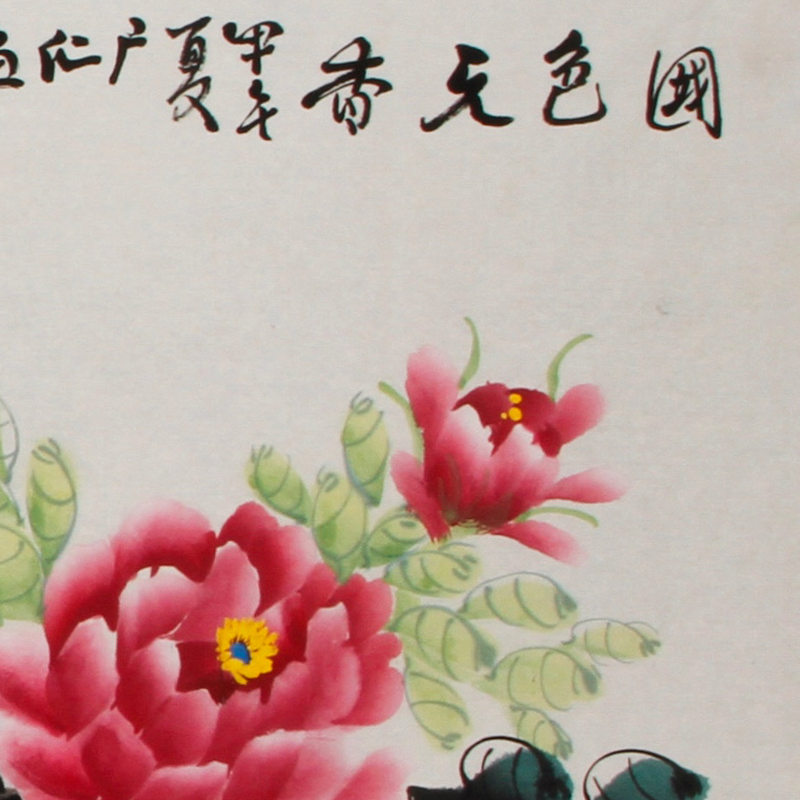 國色天香
甲午
夏广